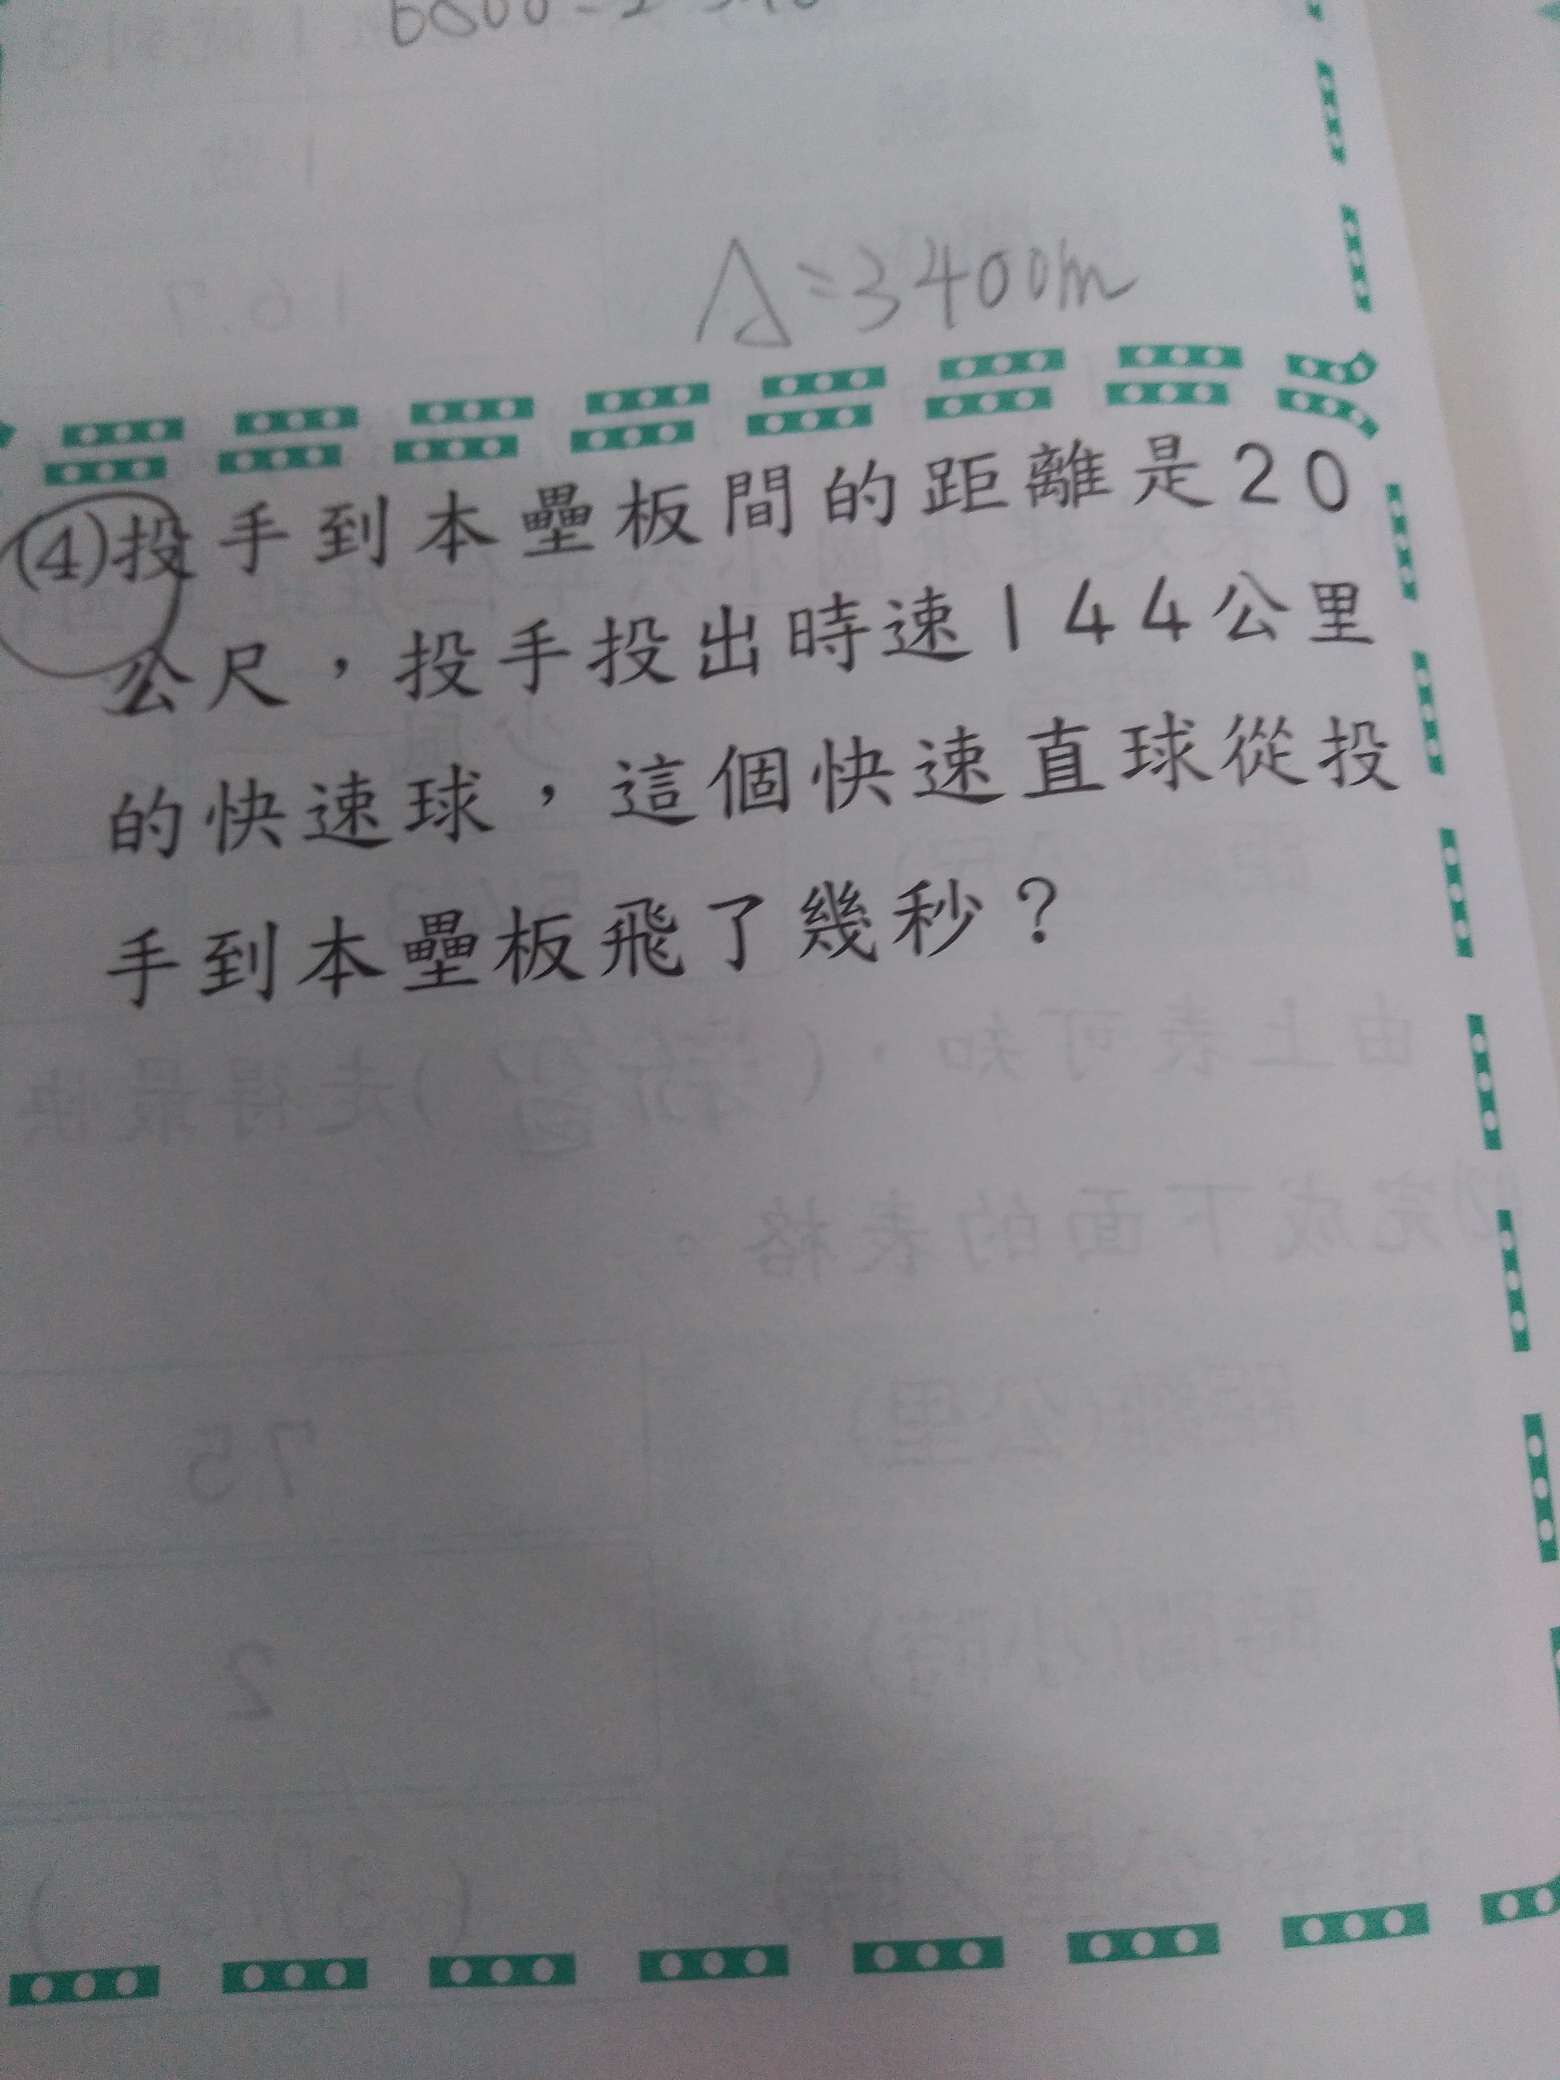 A=3400m
(4)投手到本壘板間的距離是20
公尺，投手投出時速144公里
的快速球，這個快速直球從投
手到本壘板飛了幾秒？